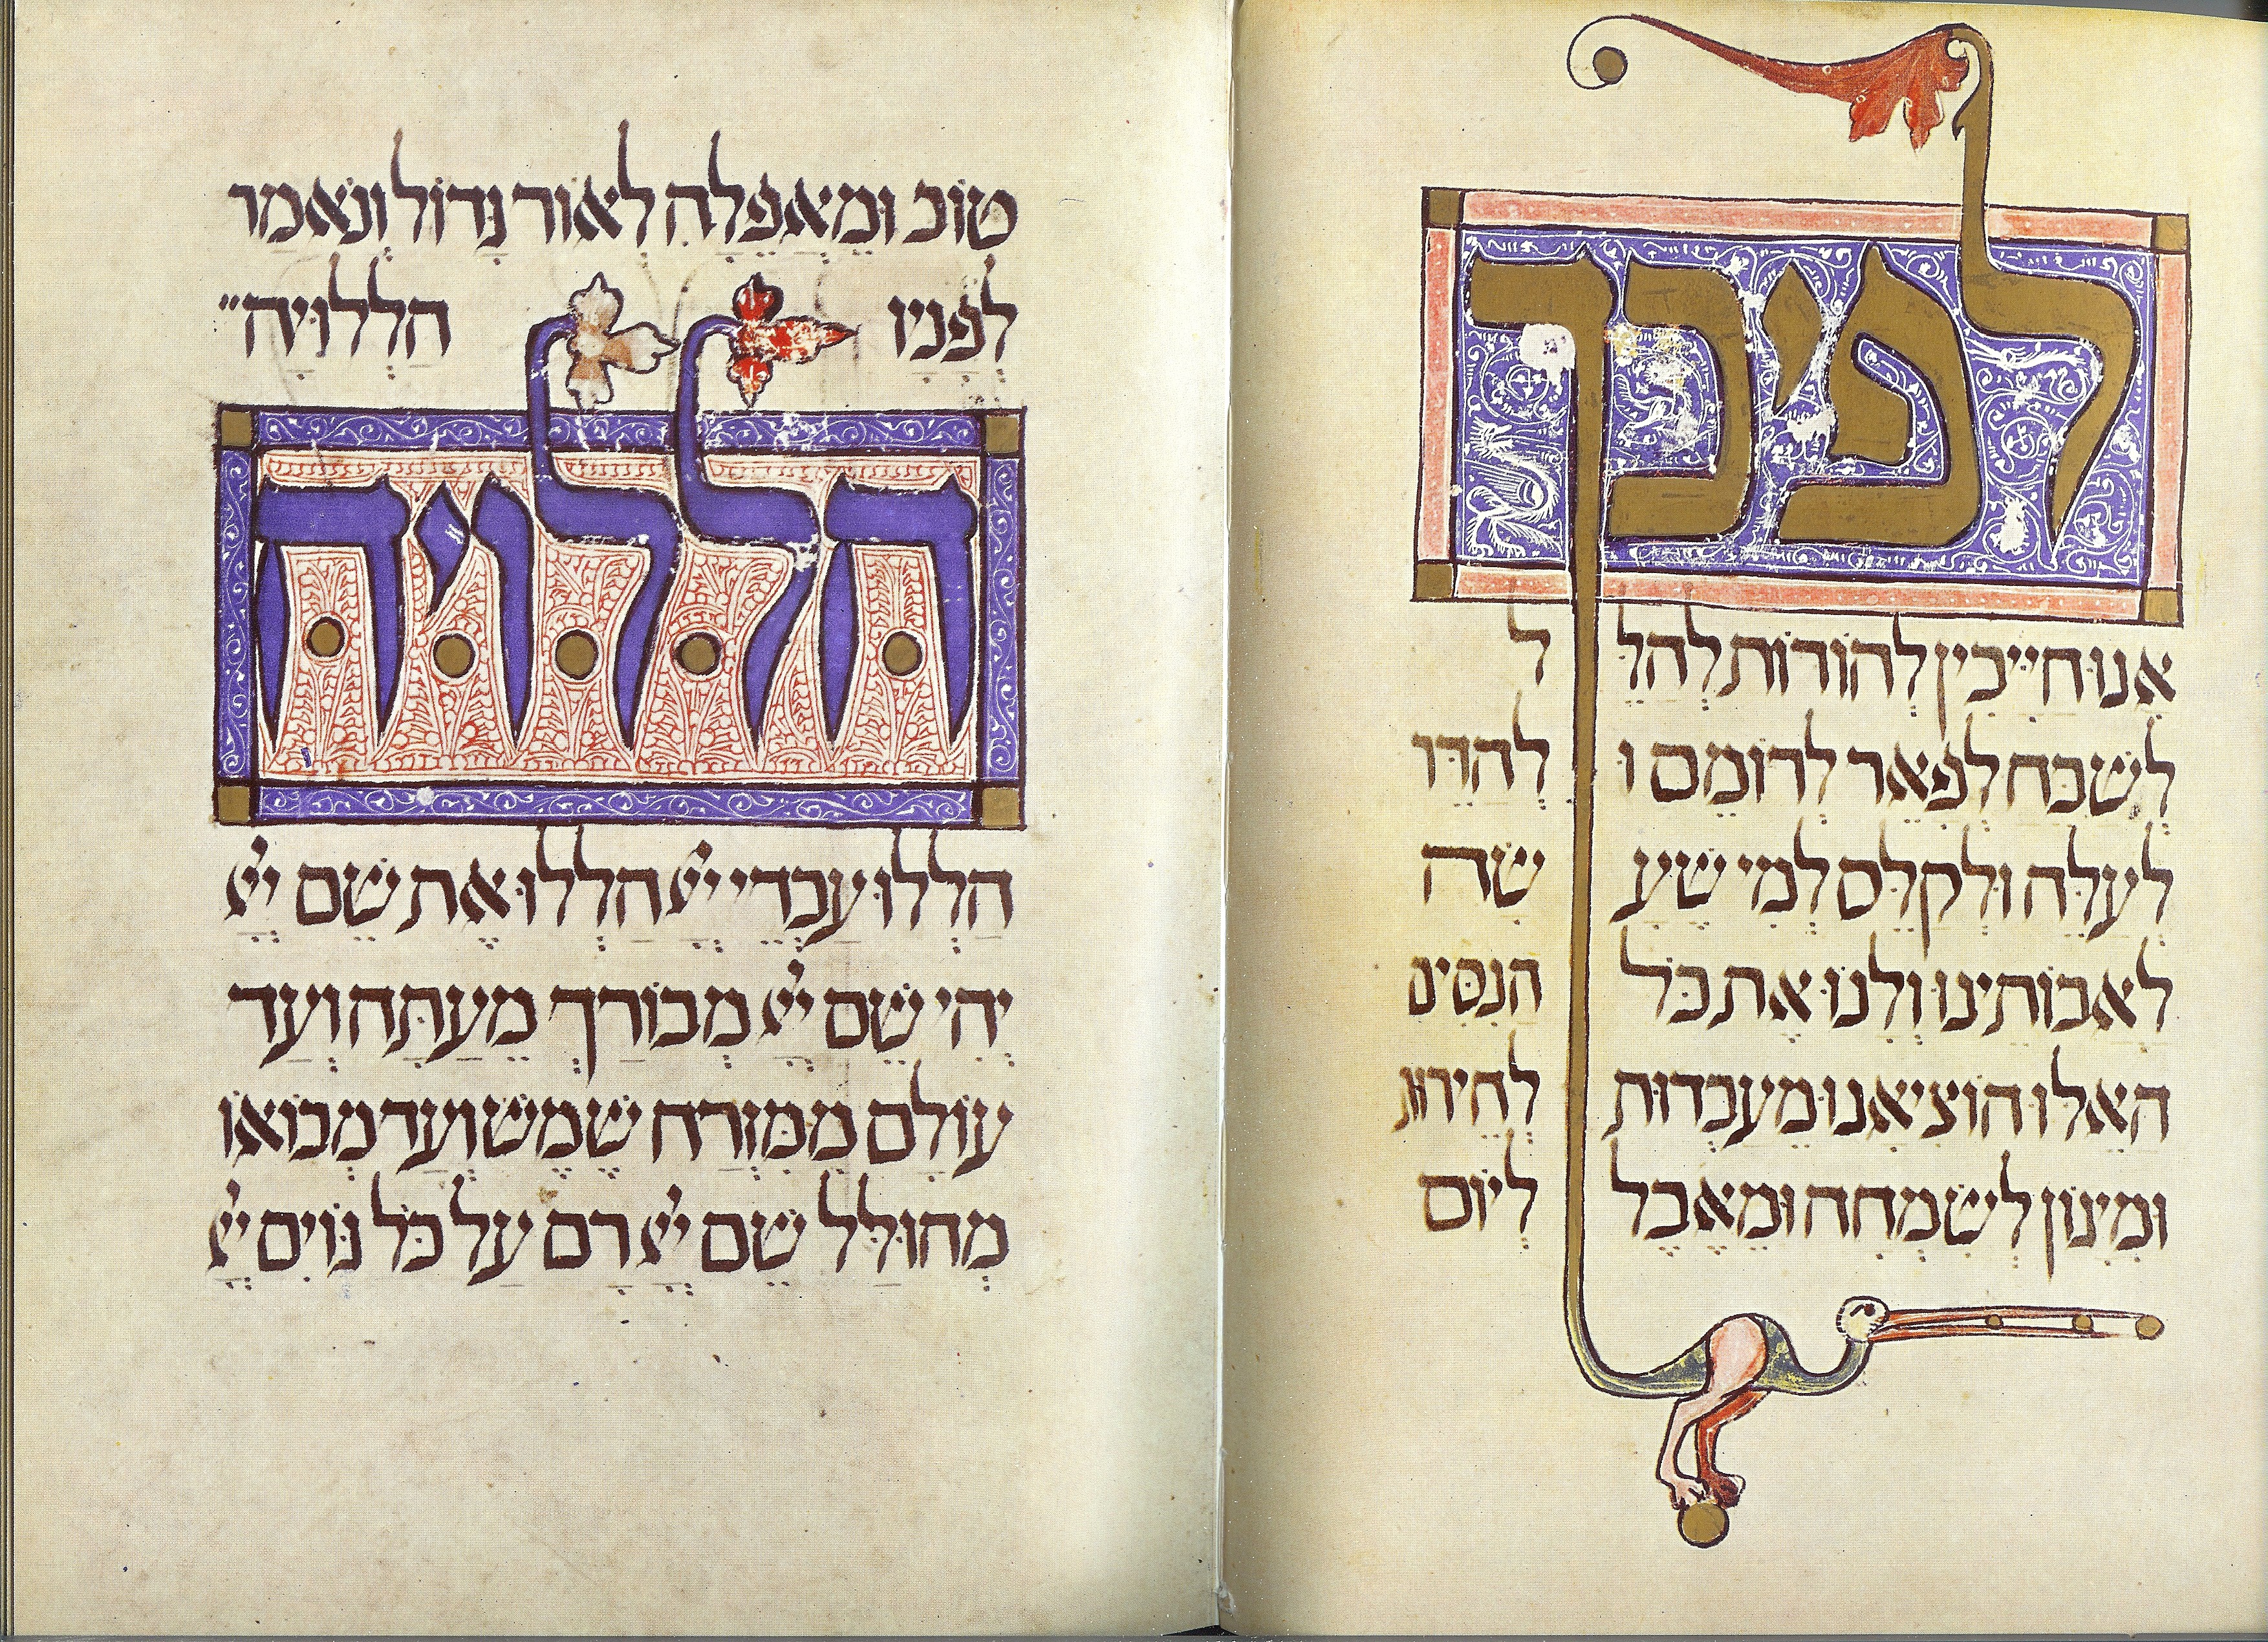 לפיכך
אנו חייבין להודות להל ל
לשבח לפאר לרומם ו להדר
לעלה ולקלס למי שע שה
לאבותינו ולנו את כל הנסים
האלו הוציאנו מעבדות לחירות
ומיגון לשמחה ומאבל ליום
טוב ומאפלה לאור גדול ונאמר
לפניו הללויה״
הללויה
הללו עבדי ייי הללו את שם ייי
יהי שם ייי מבורך מעתה ועד
עולם ממזרח שמש ועד מבואו
מהולל שם ייי רם על כל גוים ייי